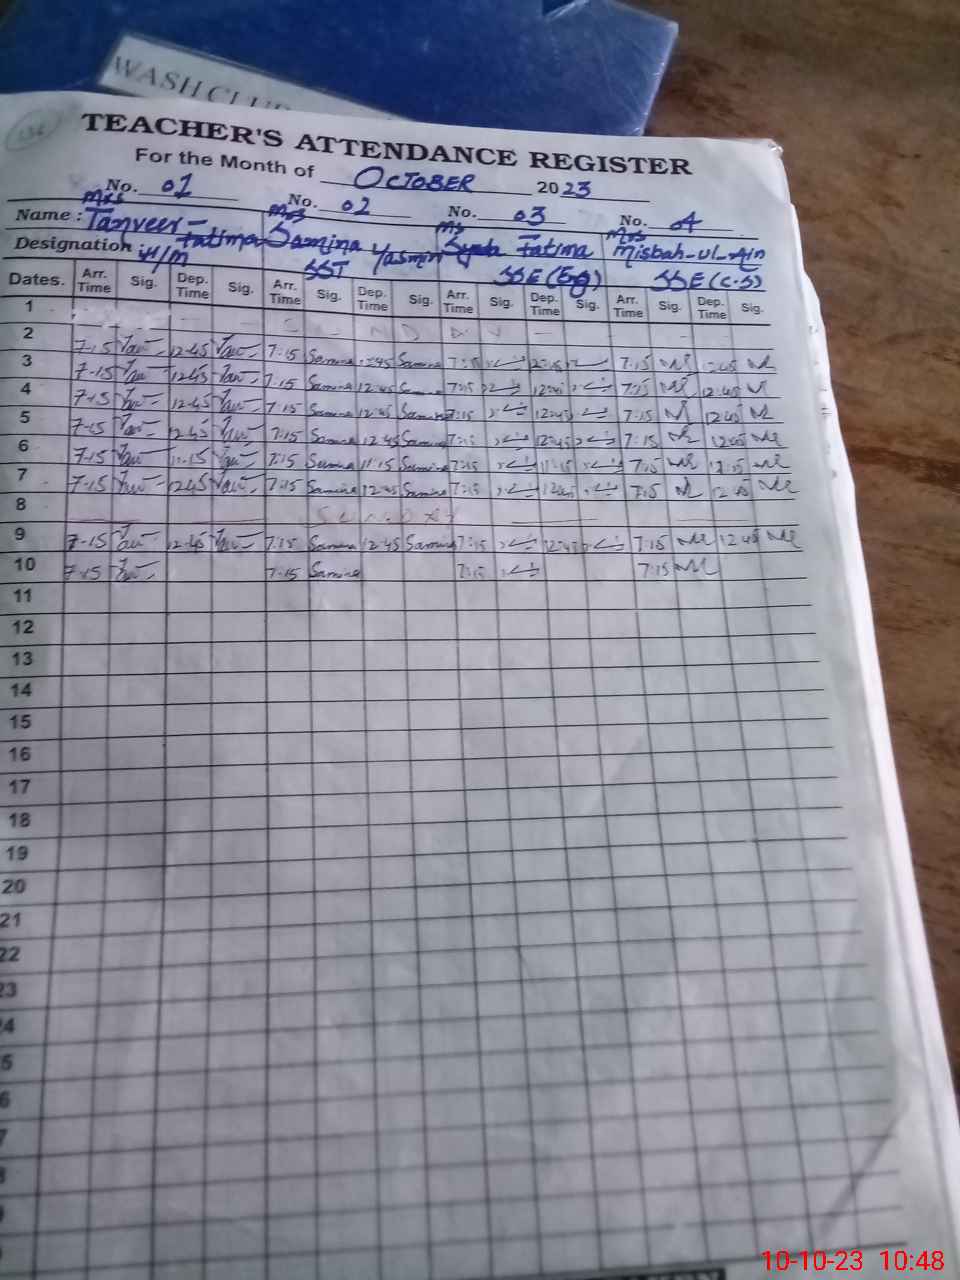 WASH CLUB
TEACHER'S ATTENDANCE REGISTER
For the Month of OCTOBER 2023
No. 01 No. 02 No. 03 No. 4
Name : Mrs Tanveer Fatima Mrs Samina Yasmin Ms Syeda Fatima Mrs Misbah-ul-Ain
Designation H/M SST SSE (Eng) SSE (C.S)
Dates. Arr. Time Sig. Dep. Time Sig. Arr. Time Sig. Dep. Time Sig. Arr. Time Sig. Dep. Time Sig. Arr. Time Sig. Dep. Time Sig.
1 SUNDAY
2 7-15 12-45 7:15 Samina 12:45 Samina 7:15 12:45 7:15 12:45
3 7-15 12-45 7:15 Samina 12:45 Samina 7:15 12:45 7:15 12:45
4 7-15 12-45 7:15 Samina 12:45 Samina 7:15 12:45 7:15 12:45
5 7-15 12-45 7:15 Samina 12:45 Samina 7:15 12:45 7:15 12:45
6 7-15 11-15 7:15 Samina 11:15 Samina 7:15 11:15 7:15
7 7-15 12-45 7:15 Samina 12:45 Samina 7:15 12:45 7:15 12:45
8 SUNDAY
9 7-15 12-45 7:15 Samina 12:45 Samina 7:15 12:45 7:15 12:45
10 7-15 7:15 Samina 7:15 7:15
11
12
13
14
15
16
17
18
19
20
21
22
23
10-10-23 10:48